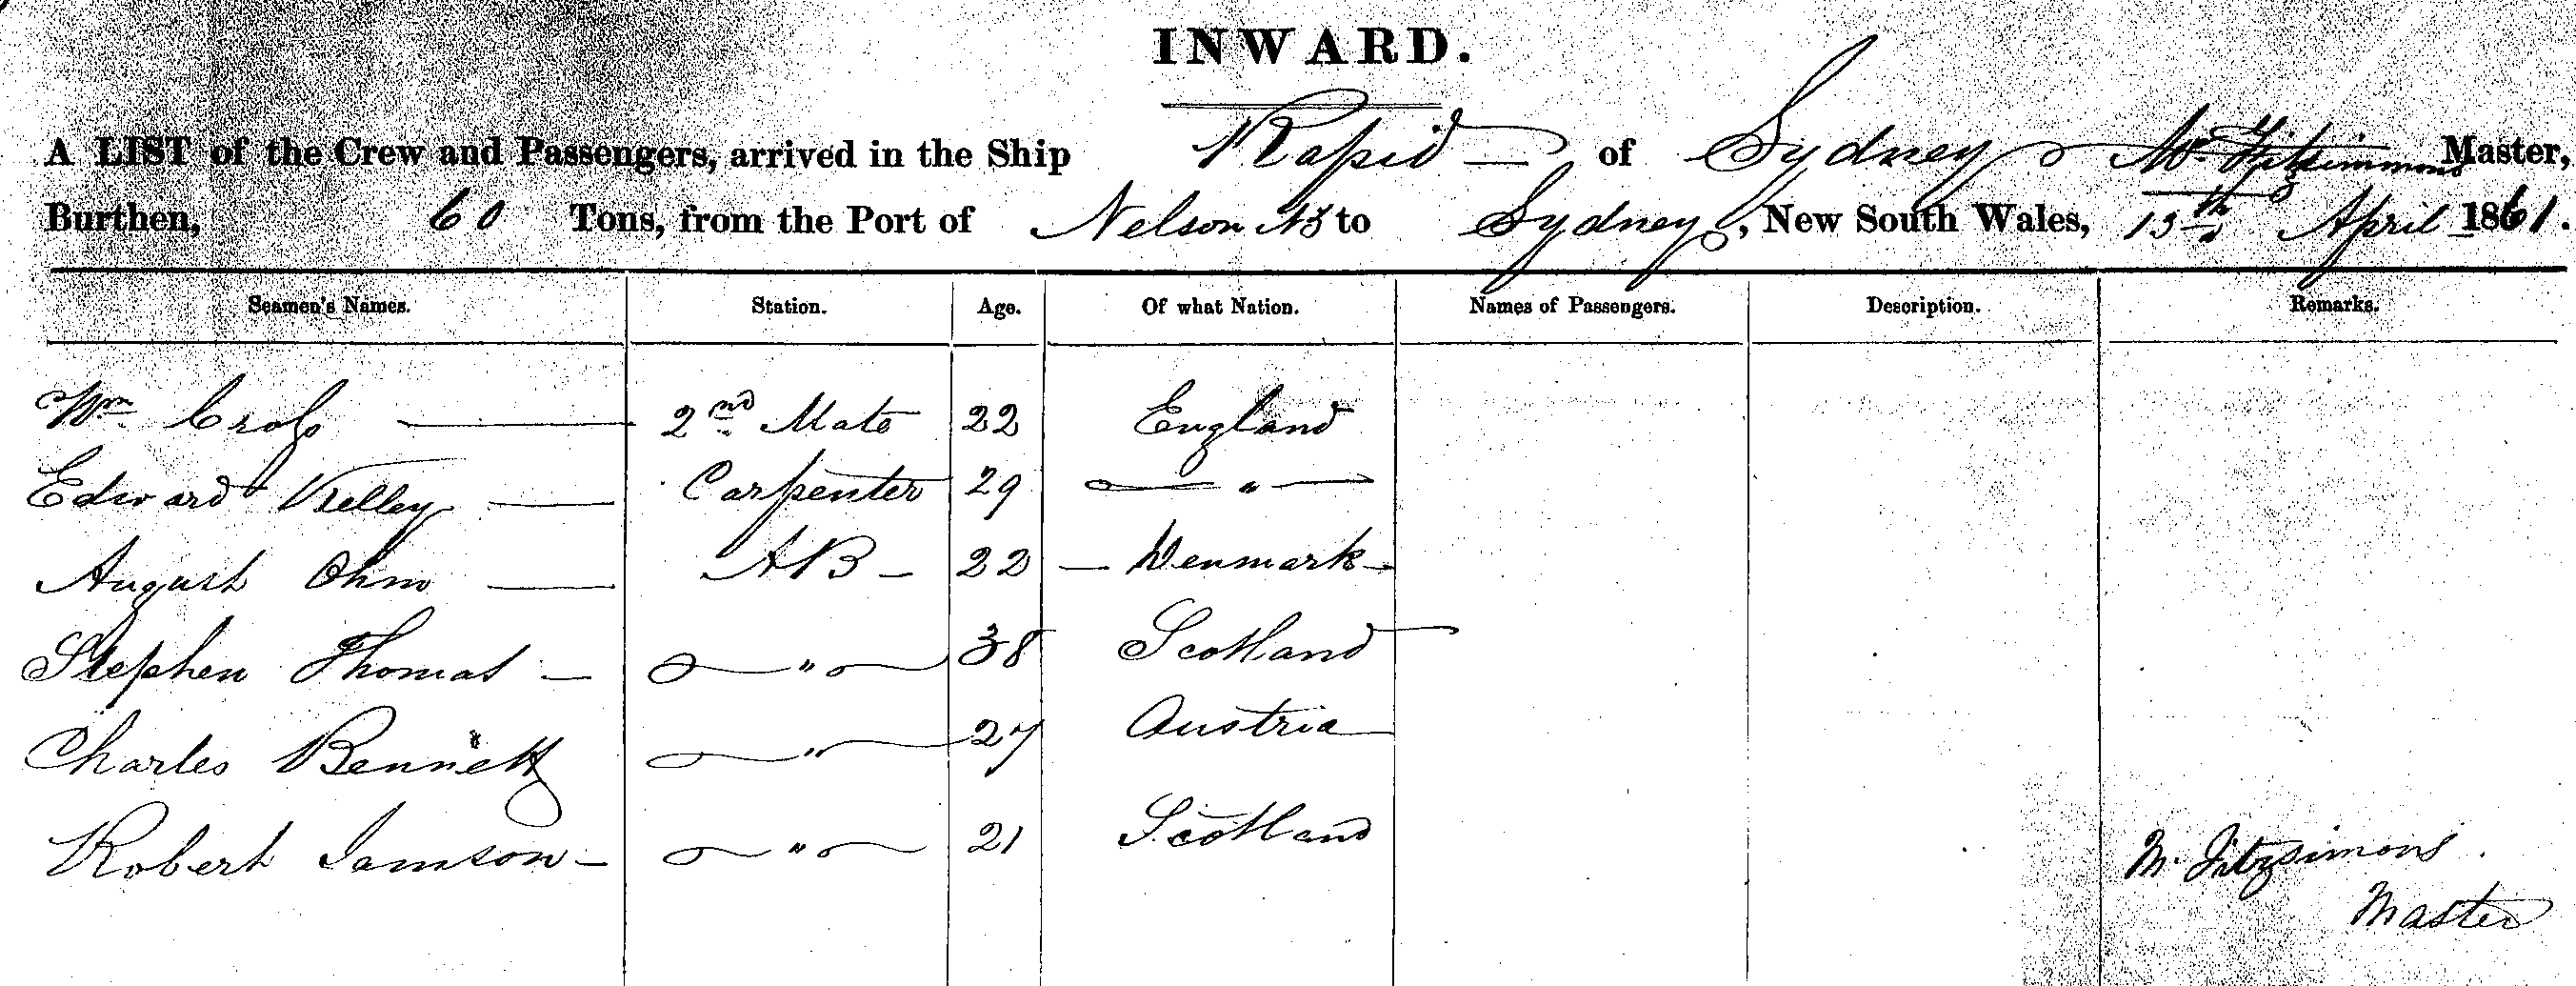 INWARD.
A LIST of the Crew and Passengers, arrived in the Ship Rapid of Sydney Fitzsimmons Master,
Burthen, 60 Tons, from the Port of Nelson NZ to Sydney, New South Wales, 13th April 1861.
Seamen's Names. Station. Age. Of what Nation. Names of Passengers. Description. Remarks.
Wm 2nd Mate 22 England
Edward Kelley Carpenter 29 "
August Ohm AB 22 Denmark
Stephen Thomas " 38 Scotland
Charles Bennett " 27 Austria
Robert Iamson " 21 Scotland
M. Fitzsimons
Master